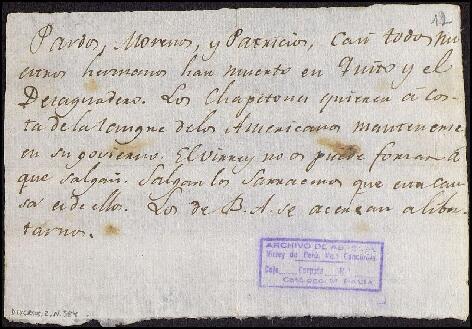 12
Pardos, Morenos, y Patricios, casi todos nu
estros hermanos han muerto en Quito y el
Desaguadero. Los Chapetones quieren á cos
ta de la sangre de los Americanos mantenerse
en su govierno. El Virrey no os puede forzar á
que salgais. Salgan los Sarracenos que esta cau
sa es de ellos. Los de B. A. se acercan a liber
tarnos.
ARCHIVO DE
Virrey de Perú,
Caja Carpeta
DIVERSOS, 2, N. 584